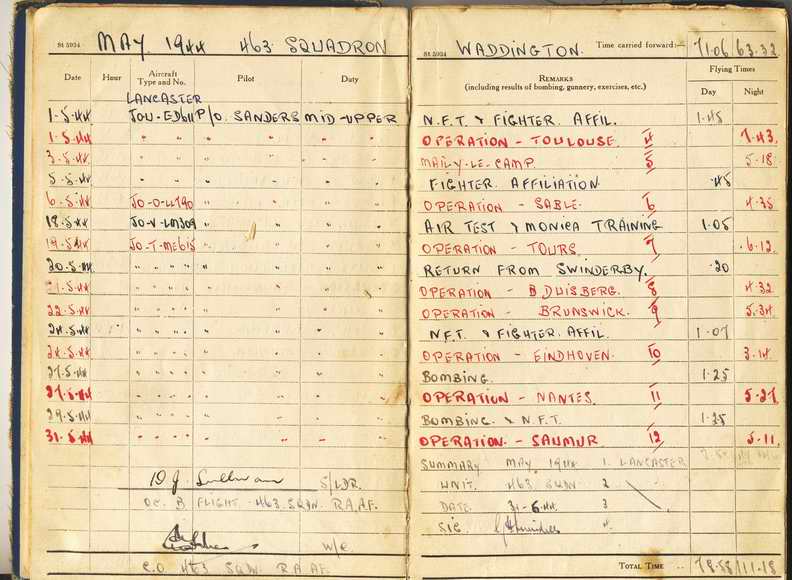 St 5934 MAY 1944 463 SQUADRON
Date Hour Aircraft Type and No. Pilot Duty
LANCASTER
1.5.44 P/O. SANDERS MID-UPPER
1.5.44 " " " "
3.5.44 " " " "
5.5.44 " " " "
6.5.44 " " "
18.5.44 JO-V-LM309 " " "
19.5.44 JO-T-ME615 " " "
20.5.44 " " " " " " "
21.5.44 " " " " " " "
22.5.44 " " " " " " "
24.5.44 " " " " " " "
24.5.44 " " " " " " "
27.5.44 " " " " " " "
27.5.44 " " " " " " "
29.5.44 " " " " " " "
31.5.44 " " " " " " "
S/LDR.
OC. B FLIGHT. 463 SQDN. R.A.A.F.
W/C
C.O. 463 SQDN R.A.A.F.
St 5934 WADDINGTON. Time carried forward:— 71.06 63.32
Remarks
(including results of bombing, gunnery, exercises, etc.)
Flying Times
Day Night
N.F.T. & FIGHTER AFFIL. 1.45
OPERATION - TOULOUSE. 4 7.43
MAILY-LE-CAMP. 5 5.18
FIGHTER AFFILIATION. .45
OPERATION - SABLE. 6 4.35
AIR TEST & MONICA TRAINING 1.05
OPERATION - TOURS. 7 6.12
RETURN FROM SWINDERBY. .20
OPERATION - DUISBERG. 8 4.32
OPERATION - BRUNSWICK. 9 5.34
N.F.T. & FIGHTER AFFIL. 1.07
OPERATION - EINDHOVEN. 10 3.14
BOMBING. 1.25
OPERATION - NANTES. 11 5.27
BOMBING. & N.F.T. 1.25
OPERATION - SAUMUR 12 5.11
SUMMARY MAY 1944 1. LANCASTER
UNIT. 463 SQDN 2
DATE. 31-6-44. 3
SIG. 4
Total Time 78.58 111.18